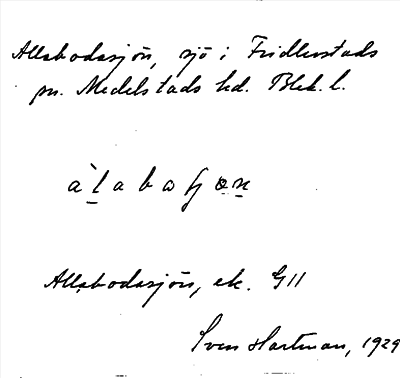 Allabodasjön, sjö i Fridlevstads
sn. Medelstads hd. Blek. l.
Allabodasjön, ek. G11
Sven Hartman, 1929